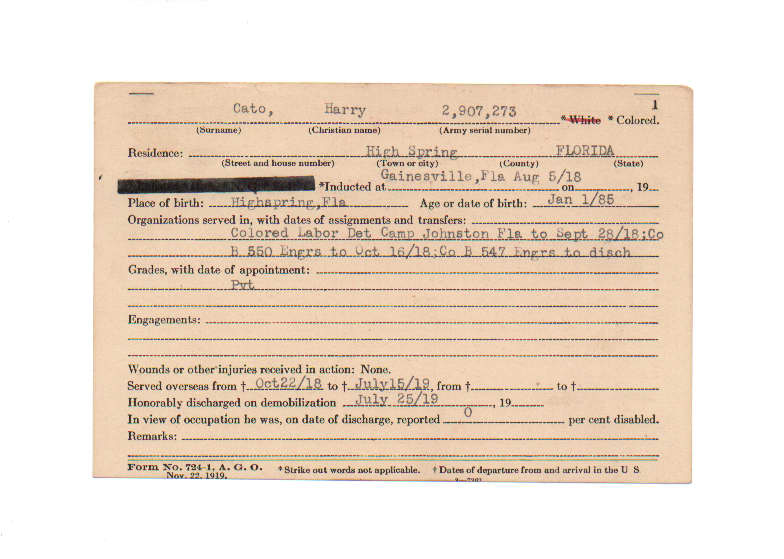 1
Cato, Harry 2,907,273 * White * Colored.
(Surname) (Christian name) (Army serial number)
Residence: High Spring FLORIDA
(Street and house number) (Town or city) (County) (State)
Gainesville,Fla Aug 5/18
*Inducted at on , 19
Place of birth: Highspring,Fla Age or date of birth: Jan 1/85
Organizations served in, with dates of assignments and transfers:
Colored Labor Det Camp Johnston Fla to Sept 28/18;Co
B 550 Engrs to Oct 16/18;Co B 547 Engrs to disch
Grades, with date of appointment:
Pvt
Engagements:
Wounds or other injuries received in action: None.
Served overseas from † Oct22/18 to † July15/19, from † to †
Honorably discharged on demobilization July 25/19 , 19
In view of occupation he was, on date of discharge, reported 0 per cent disabled.
Remarks:
Form No. 724-1, A. G. O. * Strike out words not applicable. † Dates of departure from and arrival in the U S
Nov. 22, 1919.